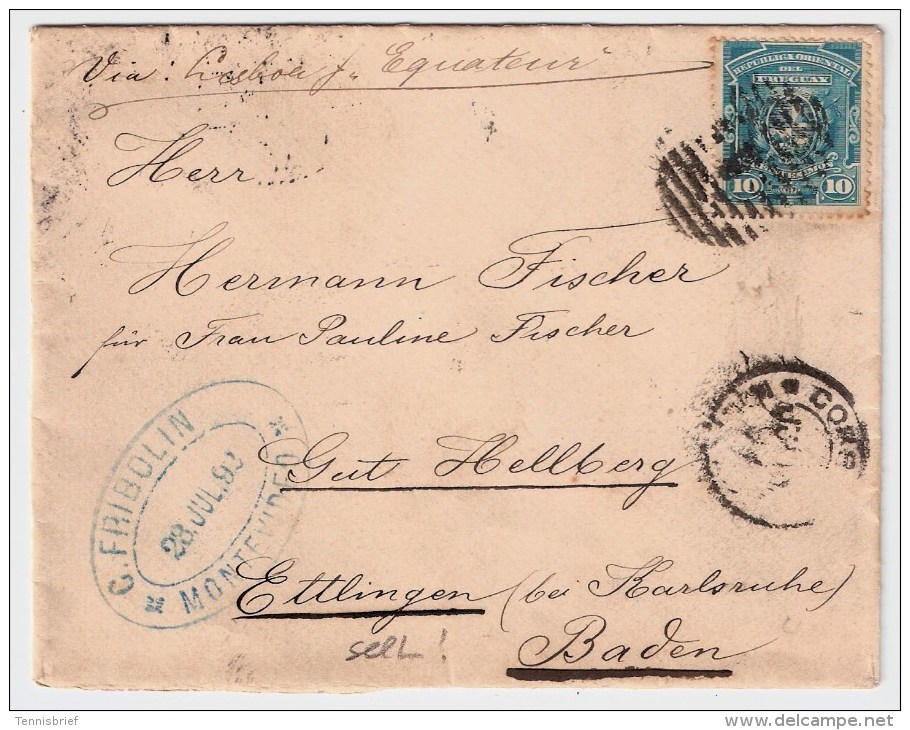 Via: Lisboa p. "Equateur"
REPUBLICA ORIENTAL
DEL
URUGUAY
10 10
Herr
Hermann Fischer
für Frau Pauline Fischer
C. FRIBOLIN
28. JUL. 93
MONTEVIDEO
Gut Hellberg
Ettlingen (bei Karlsruhe)
Baden
sell!
Tennisbrief
www.delcampe.net